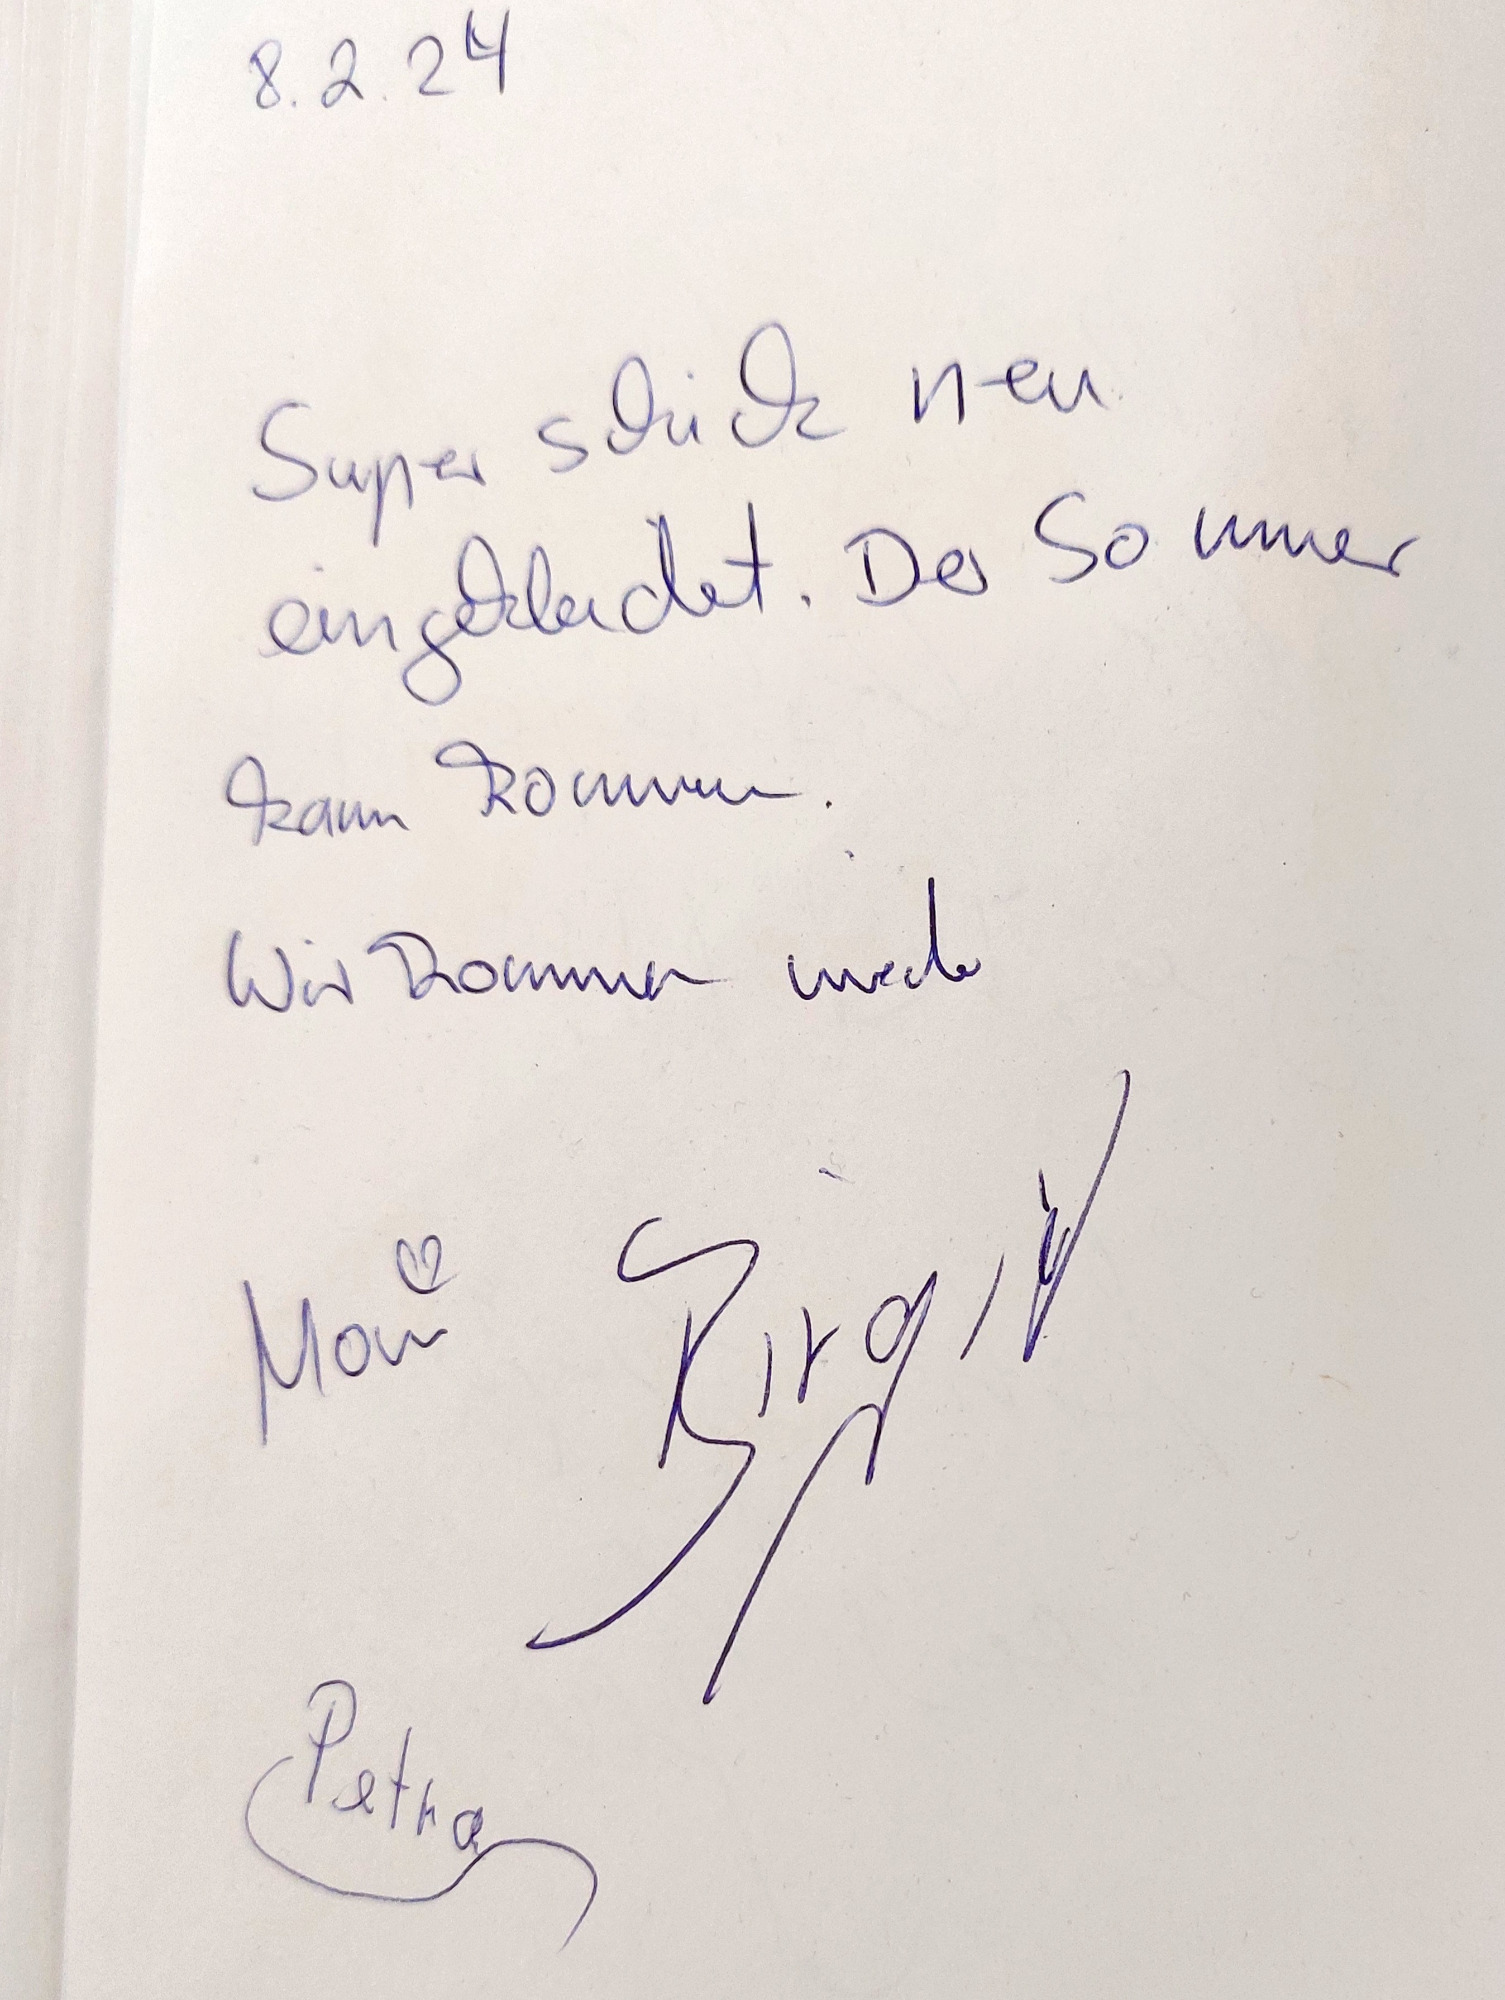 8.2.24
Super schick neu
eingekleidet. Der Sommer
kann kommen.
Wir kommen wieder
Moni Birgit
Petra